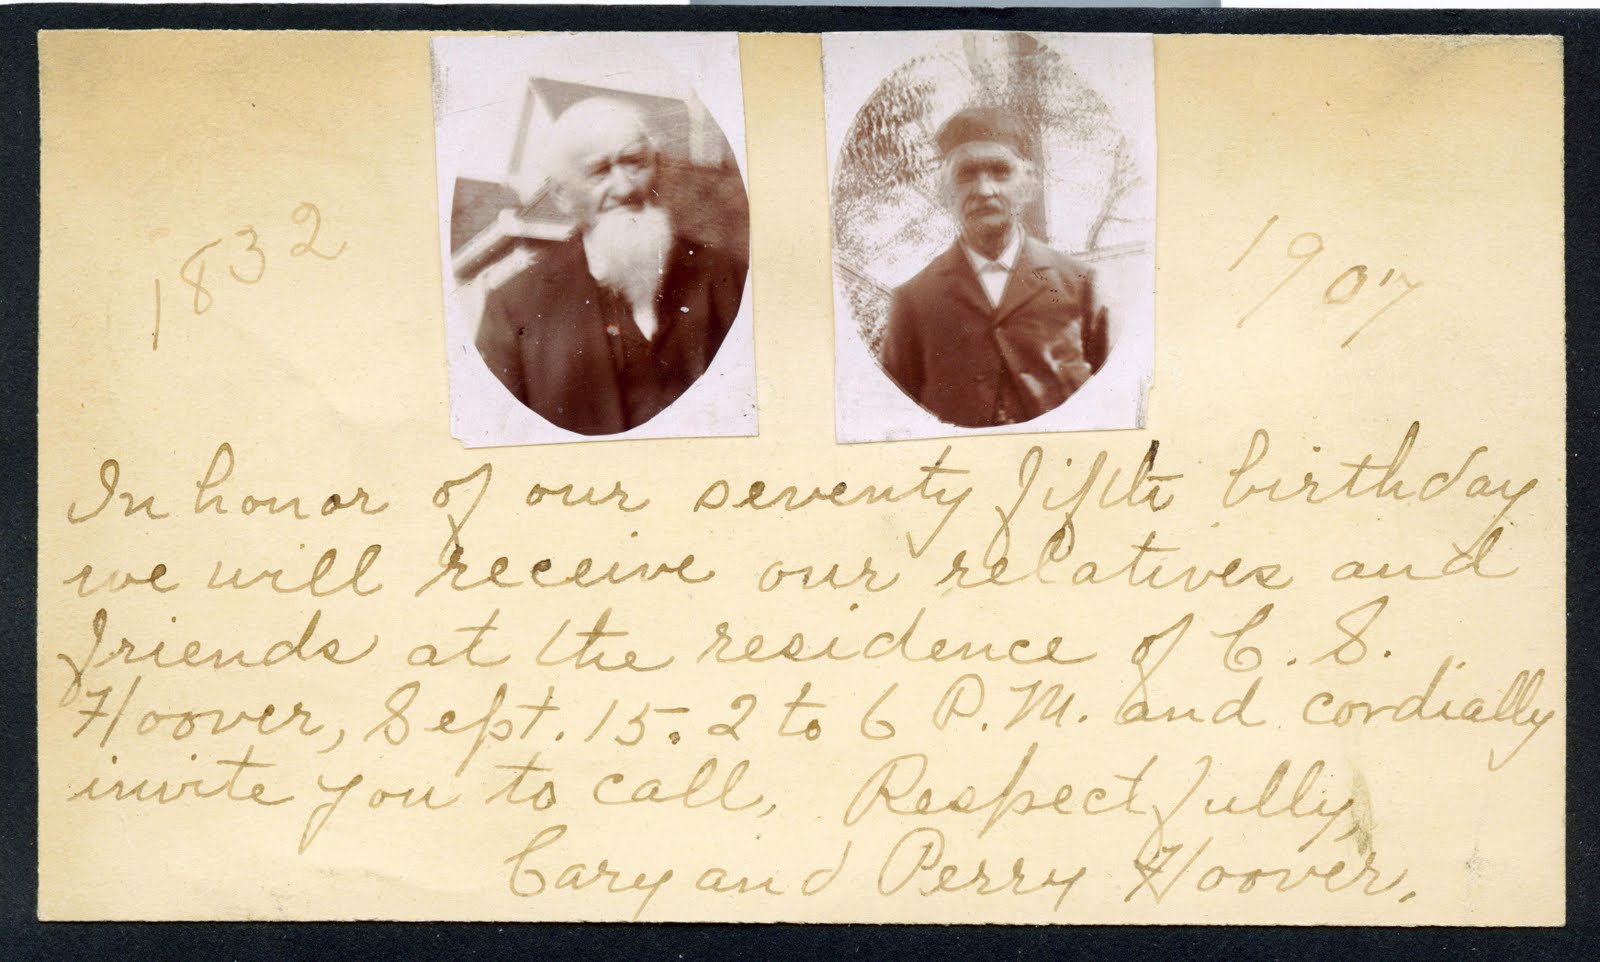 1832
1907
In honor of our seventy fifth birthday
we will receive our relatives and
friends at the residence of C. S.
Hoover, Sept. 15. 2 to 6 P.M. and cordially
invite you to call. Respectfully,
Cary and Perry Hoover.